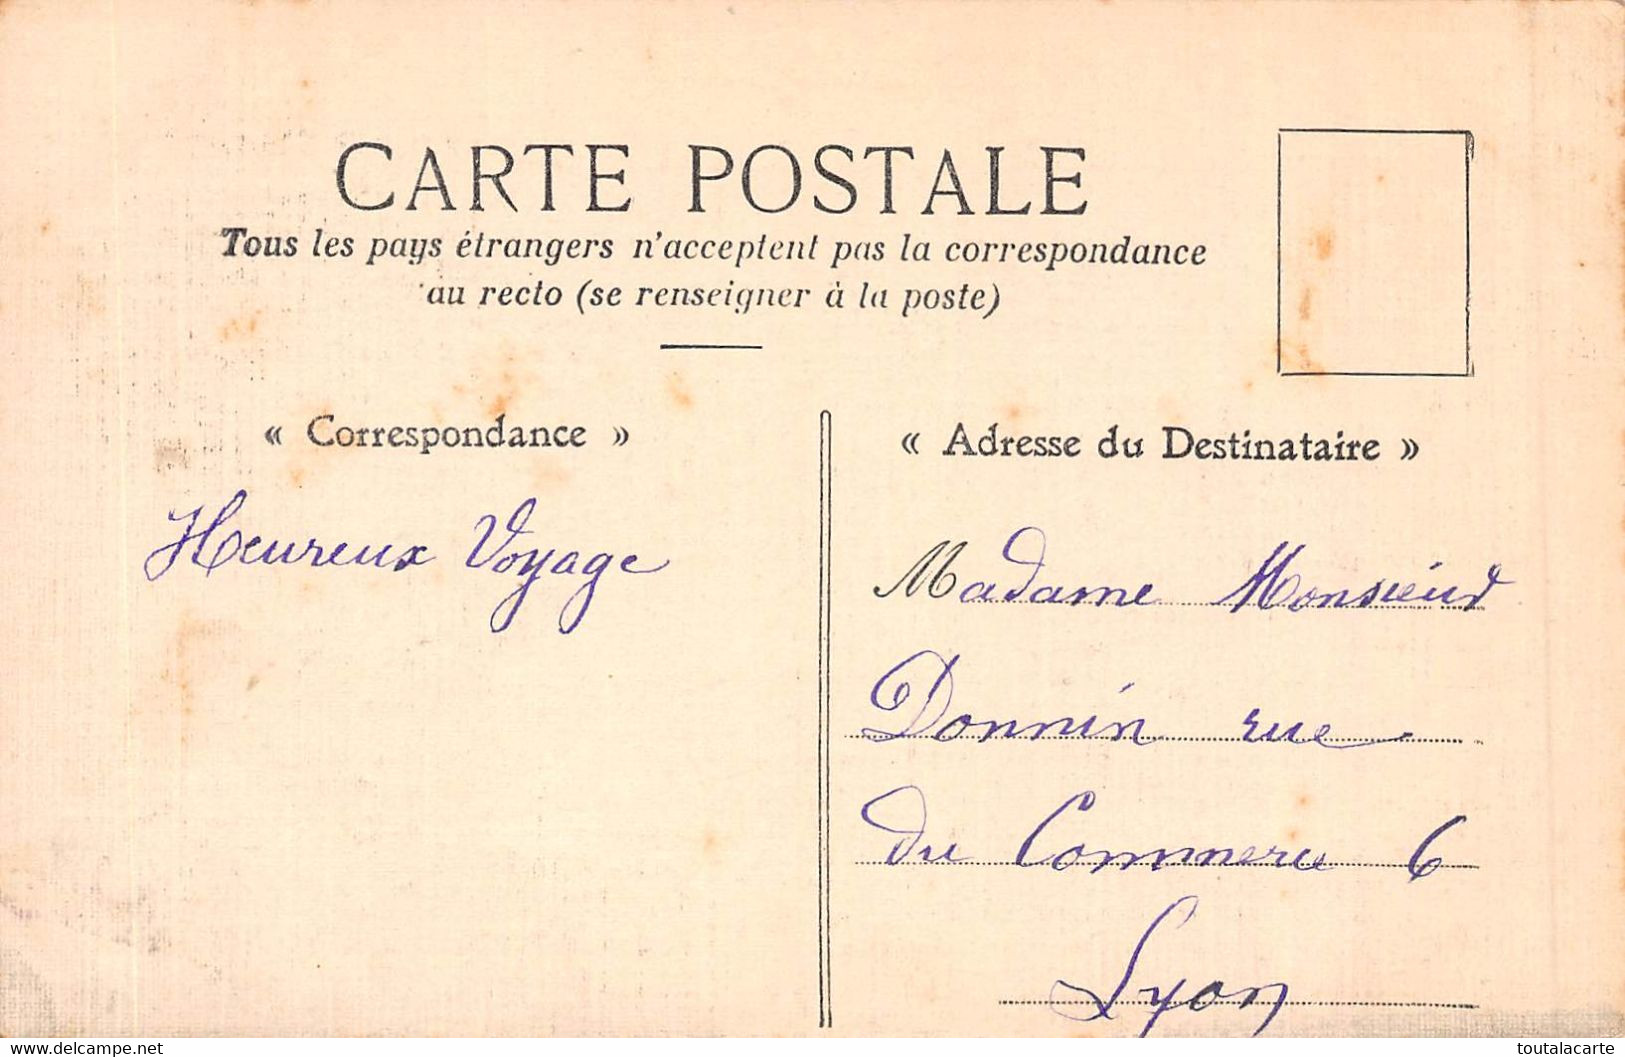 CARTE POSTALE
Tous les pays étrangers n'acceptent pas la correspondance
au recto (se renseigner à la poste)
« Correspondance »
Heureux Voyage
« Adresse du Destinataire »
Madame Monsieur
Donnin rue
du Commerce 6
Lyon
www.delcampe.net
toutalacarte